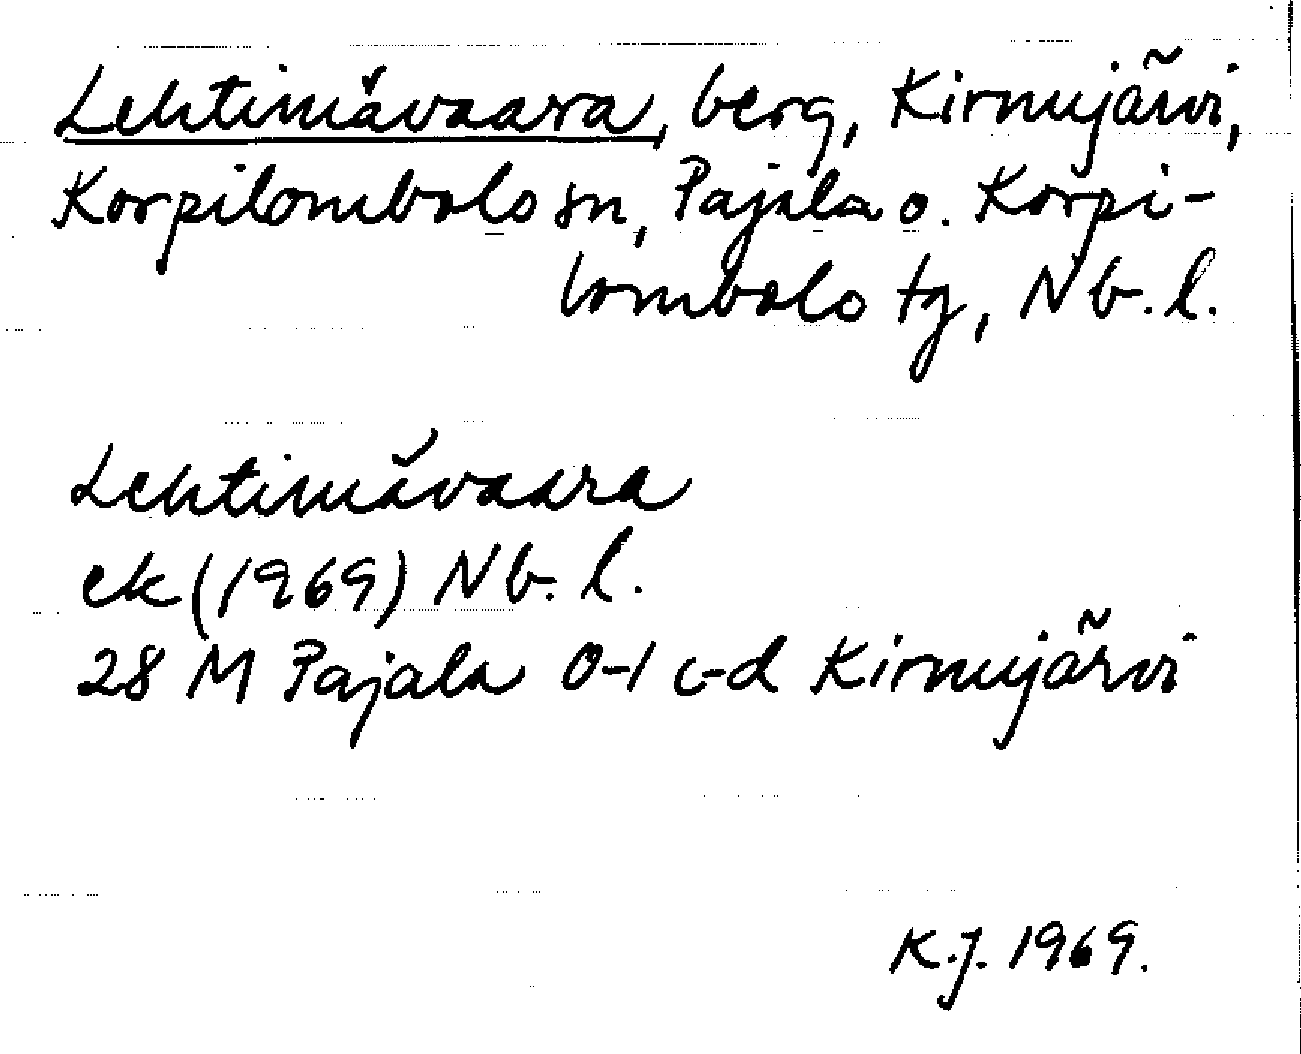 Lehtimävaara, berg, Kirnujärvi,
Korpilombolo sn, Pajala o. Korpi-
lombolo tg, Nb. l.
Lehtimävaara
ek (1969) Nb. l.
28 M Pajala 0-1 c-d Kirnujärvi
K.J. 1969.